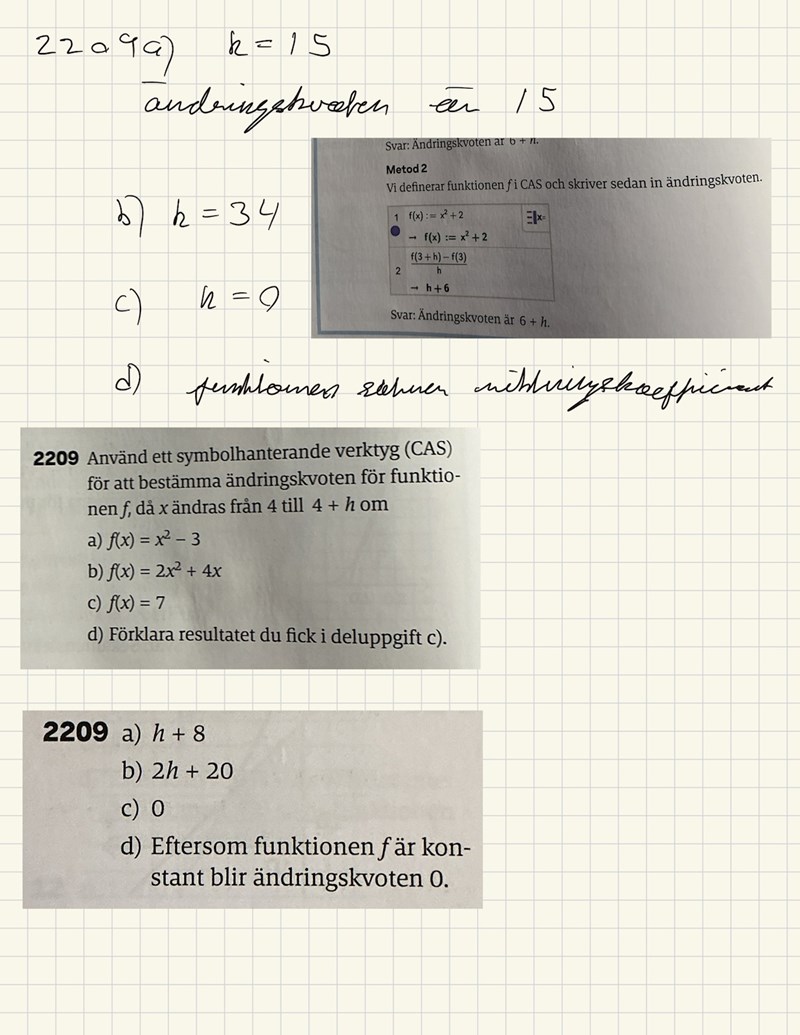 2209a) k = 15
ändringskvoten är 15
Svar: Ändringskvoten är 6 + h.
Metod 2
Vi definerar funktionen f i CAS och skriver sedan in ändringskvoten.
1 f(x) := x² + 2
→ f(x) := x² + 2
f(3 + h) – f(3)
2 h
→ h + 6
Svar: Ändringskvoten är 6 + h.
b) k = 34
c) k = 0
d) funktionen saknar riktningskoefficient
2209 Använd ett symbolhanterande verktyg (CAS)
för att bestämma ändringskvoten för funktio-
nen f, då x ändras från 4 till 4 + h om
a) f(x) = x² – 3
b) f(x) = 2x² + 4x
c) f(x) = 7
d) Förklara resultatet du fick i deluppgift c).
2209 a) h + 8
b) 2h + 20
c) 0
d) Eftersom funktionen f är kon-
stant blir ändringskvoten 0.